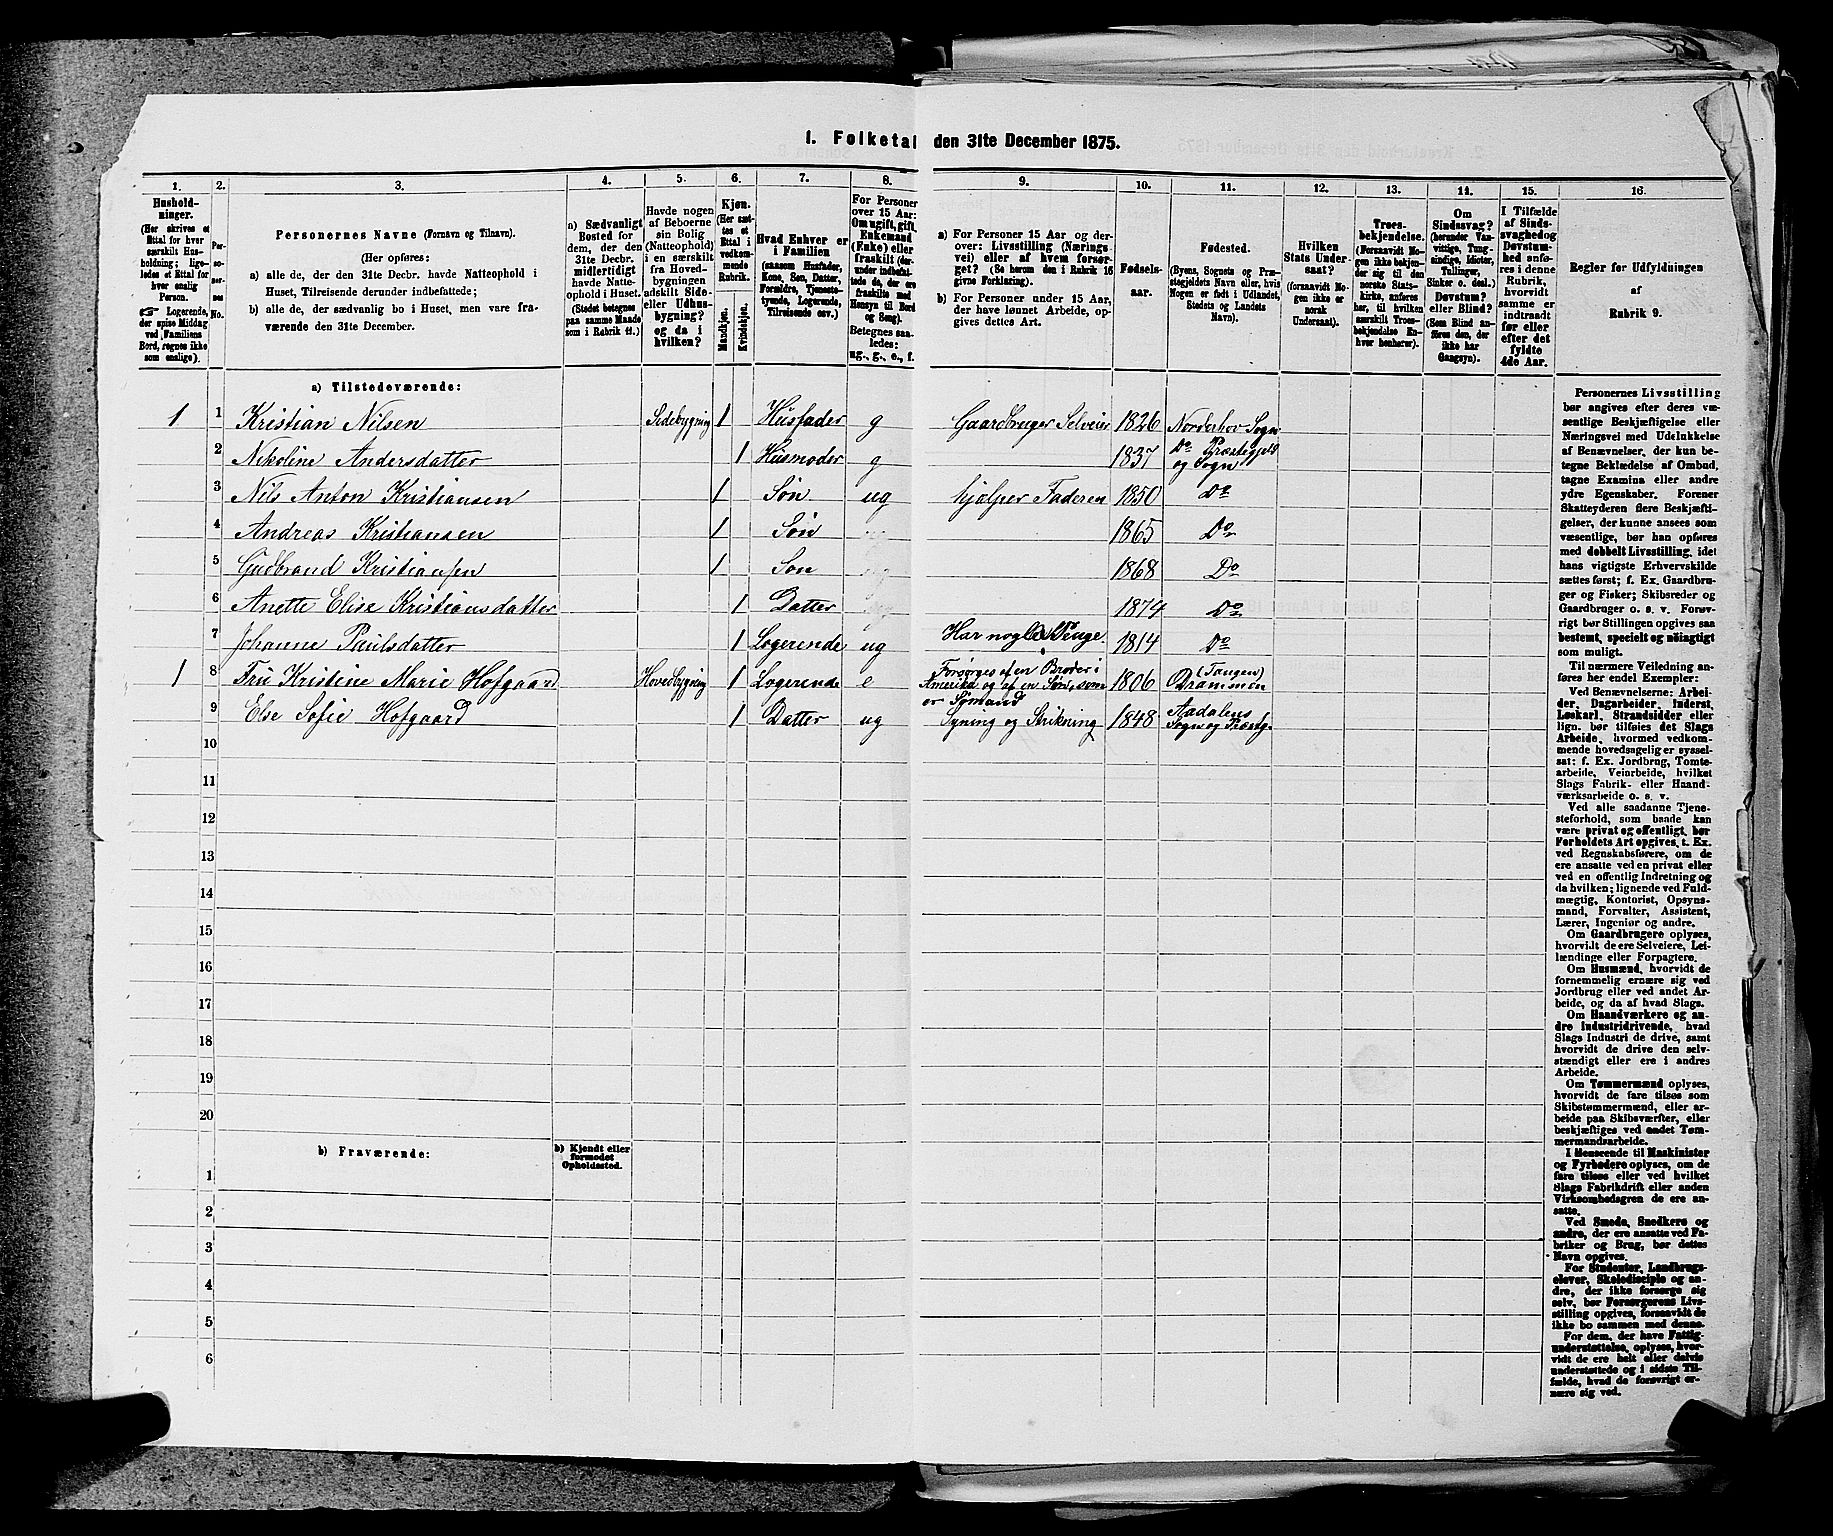 1. Folketal den 31te December 1875.
1. 2. 3. 4. 5. 6. 7. 8. 9. 10. 11. 12. 13. 14. 15. 16.
Hushold-
ninger.
(Her skrives et
Ettal for hver
særskilt Hus-
holdning; lige-
ledes et Ettal for
hver enslig
Person.
Logerende,
der spise Middag
ved Familiens
Bord, regnes ikke
som enslige).
Per-
so-
ner-
nes
No.
Personernes Navne (Fornavn og Tilnavn).
(Her opføres:
a) alle de, der den 31te Decbr. havde Natteophold i
Huset, Tilreisende derunder indbefattede;
b) alle de, der sædvanlig bo i Huset, men vare fra-
værende den 31te December.
a) Sædvanligt
Bosted for
dem, der den
31te Decbr.
midlertidigt
havde Natte-
ophold i Huset.
(Stedet betegnes
paa samme Maade
som i Rubrik 11.)
Havde nogen
af Beboerne
sin Bolig
(Natteophold)
i en særskilt
fra Hoved-
bygningen
adskilt Side-
eller Udhus-
bygning?
og da i
hvilken?
Kjøn.
(Her sæt-
tes et
Ettal i
vedkom-
mende
Rubrik.
Mandkjøn.
Kvindekjøn.
Hvad Enhver er
i Familien
(saasom Husfader,
Kone, Søn, Datter,
Forældre, Tjeneste-
tyende, Logerende,
Tilreisende osv.)
For Personer
over 15 Aar:
Om ugift, gift,
Enkemand
(Enke) eller
fraskilt (der-
under indbefat-
tede de, der ere
fraskilte med
Hensyn til Bord
og Seng).
Betegnes saa-
ledes:
ug., g., e., f.
a) For Personer 15 Aar og der-
over: Livsstilling (Nærings-
vei) eller af hvem forsør-
get? (Se herom den i Rubrik 16
givne Forklaring).
b) For Personer under 15 Aar,
der have lønnet Arbeide, op-
gives dettes Art.
Fødsels-
aar.
Fødested.
(Byens, Sognets og Præ-
stegjeldets Navn, eller hvis
Nogen er født i Udlandet,
Stedets og Landets
Navn).
Hvilken
Stats Under-
saat?
(forsaavidt No-
gen ikke er
norsk
Undersaat).
Troes-
bekjendelse.
(Forsaavidt No-
gen ikke beken-
der sig til den
norske Stats-
kirke, anføres
her, til hvilken
særskilt Troes-
bekjendelse En-
hver henhører).
Om
Sindssvag?
(herunder Van-
vittige, Idioter,
Tullinger,
Sinker o. desl.)
Døvstum?
eller Blind?
(Som Blind an-
føres den, der
ikke har
Gangsyn).
I Tilfælde
af Sinds-
svaghed og
Døvstum-
hed anfø-
res i denne
Rubrik,
hvorvidt
samme er
indtraadt
før eller
efter det
fyldte
4de Aar.
Regler for Udfyldningen
af
Rubrik 9.
a) Tilstedeværende:
1 1 Kristian Nilsen Sidebygning 1 Husfader g Gaardbruger Selveier 1826 Norderhov Sogn
2 Nikoline Andersdatter 1 Husmoder g 1837 Do Præstegjeld og Sogn
3 Nils Anton Kristiansen 1 Søn ug hjelper Faderen 1850 Do
4 Andreas Kristiansen 1 Søn 1865 Do
5 Gudbrand Kristiansen 1 Søn 1868 Do
6 Anette Elise Kristiansdatter 1 Datter 1874 Do
7 Johanne Paulsdatter 1 Logerende ug Har nogle Penge 1814 Do
1 8 Fru Kristine Marie Hofgaard Hovedbygning 1 Logerende e Forsørges af en Broder i Amerika og af en Søn, som er Sømand 1806 (Tangen) Drammen
9 Else Sofie Hofgaard 1 Datter ug Syning og Strikning 1848 Aadalens Sogn og Præstg.
10
11
12
13
14
15
16
17
18
19
20
b) Fraværende:
b) Kjendt eller
formodet
Opholdssted.
1
2
3
4
5
6
Personernes Livsstilling
bør angives efter deres væ-
sentlige Beskjæftigelse eller
Næringsvei med Udelukkelse
af Benævnelser, der kun be-
tegne Beklædelse af Ombud,
tagne Examina eller andre
ydre Egenskaber. Forener
Skatteyderen flere Beskjæfti-
gelser, der kunne ansees som
væsentlige, bør han opføres
med dobbelt Livsstilling, idet
hans vigtigste Erhvervskilde
sættes først; f. Ex. Gaardbru-
ger og Fisker; Skibsreder og
Gaardbruger o. s. v. Forøv-
rigt bør Stillingen opgives saa
bestemt, specielt og nøiagtigt
som muligt.
Til nærmere Veiledning an-
føres her endel Exempler:
Ved Benævnelserne: Arbei-
der, Dagarbeider, Inderst,
Løskarl, Strandsidder eller
lign. bør tilføies det Slags
Arbeide, hvormed vedkom-
mende hovedsagelig er syssel-
sat; f. Ex. Jordbrug, Tomte-
arbeide, Veiarbeide, hvilket
Slags Fabrik- eller Haand-
værksarbeide o. s. v.
Ved alle saadanne Tjene-
steforhold, som baade kan
være privat og offentligt, bør
Forholdets Art opgives, t. Ex.
ved Regnskabsførere, om de
ere ansatte ved en privat eller
ved en offentlig Indretning og
da hvilken; lignende ved Fuld-
mægtig, Kontorist, Opsyns-
mand, Forvalter, Assistent,
Lærer, Ingeniør og andre.
Om Gaardbrugere oplyses,
hvorvidt de ere Selveiere, Lei-
lændinge eller Forpagtere.
Om Husmænd, hvorvidt de
fornemmelig ernære sig ved
Jordbrug eller ved andet Ar-
beide, og da af hvad Slags.
Om Haandværkere og an-
dre Industridrivende, hvad
Slags Industri de drive, samt
hvorvidt de drive den selv-
stændigt eller ere i andres
Arbeide.
Om Tømmermænd oplyses,
hvorvidt de fare tilsøs som
Skibstømmermænd, eller ar-
beide paa Skibsværfter, eller
beskjæftiges ved andet Tøm-
mermandsarbeide.
I Henseende til Maskinister
og Fyrbødere oplyses, om de
fare tilsøs eller ved hvilket
Slags Fabrikdrift eller anden
Virksomhedsgren de ere an-
satte.
Ved Smede, Snedkere og
andre, der ere ansatte ved Fa-
briker og Brug, bør dettes
Navn opgives.
For Studenter, Landbrugs-
elever, Skoledisciple og an-
dre, der ikke forsørge sig
selv, bør Forsørgerens Livs-
stilling opgives, forsaavidt de
ikke bo sammen med denne.
For dem, der have Fattig-
understøttelse, oplyses, hvor-
vidt de ere helt eller delvis
understøttede og i sidste Til-
fælde, hvad de forøvrigt er-
nære sig ved.